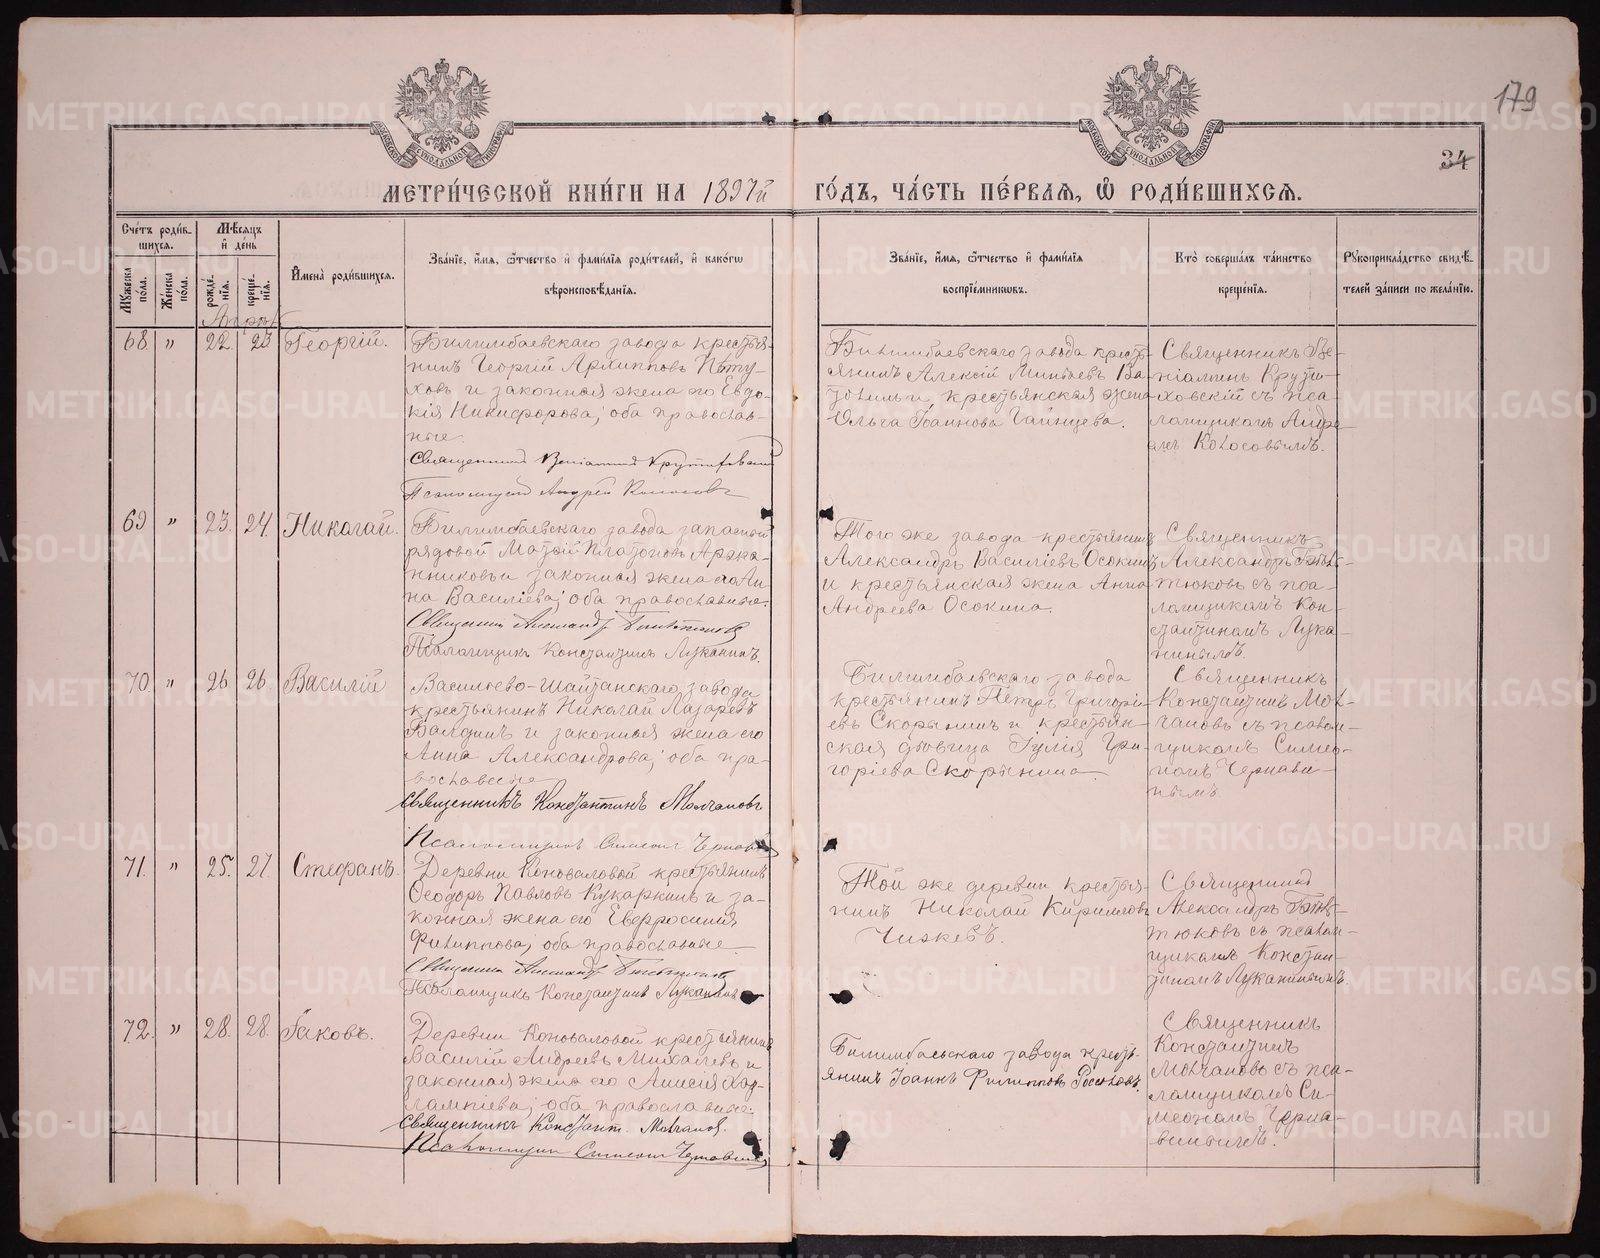 179
34
МЕТРИ́ЧЕСКОЙ КНИ́ГИ НА 1897й ГО́ДЪ, ЧА́СТЬ ПЕ́РВАЯ, Ѿ РОДИ́ВШИХСЯ.
Сче́тъ роди́в-
шихся.
Мꙋ́жеска по́ла.
Же́нска по́ла.
Мѣ́сяцъ и де́нь
рожде́нія.
креще́нія.
И҆мена̀ роди́вшихся.
Зва́ніе, и҆́мя, ѻ҆́тчество и҆ фами́лія роди́телей, и҆ како́гѡ
вѣроисповѣ́данія.
Зва́ніе, и҆́мя, ѻ҆́тчество и҆ фами́лія
воспріе́мниковъ.
Кто̀ соверша́лъ та́инство
креще́нія.
Рꙋкоприкла́дство свидѣ́-
телей за́писи по жела́нію.
68. " 22. 23 Георгій.
Билимбаевскаго завода крестья-
нинъ Георгій Архипповъ Пѣту-
ховъ и законная жена его Евдо-
кія Никифорова; оба православ-
ные.
Священникъ Веніаминъ
Псаломщикъ Андрей Колосовъ
Билимбаевскаго завода кресть-
янинъ Алексій
крестьянская жена
Ольга Іоаннова
Священникъ Ве-
ніаминъ
съ пса-
ломщикомъ Андре-
емъ Колосовымъ.
69 " 23. 24. Николай.
Билимбаевскаго завода запасный
рядовой Матѳій Платоновъ
и законная жена его Ан-
на Василіева; оба православные.
Священникъ Александръ
Псаломщикъ Константинъ Луканинъ.
Того же завода крестьянинъ
Александръ Василіевъ Осокинъ
и крестьянская жена Анна
Андреева Осокина.
Священникъ
Александръ
съ пса-
ломщикомъ Кон-
стантиномъ Лука-
нинымъ.
70. " 26 26. Василій
Васильево-Шайтанскаго завода
крестьянинъ Николай Лазаревъ
и законная жена его
Анна Александрова; оба пра-
вославные
Священникъ Константинъ Молчановъ
Псаломщикъ Симеонъ
Билимбаевскаго завода
крестьянинъ Петръ Григорі-
евъ Скорынинъ и крестьян-
ская дѣвица Іулія Гри-
горіева Скорынина.
Священникъ
Константинъ Мол-
чановъ съ псалом-
щикомъ Симео-
номъ
71. " 25. 27. Стефанъ.
Деревни Коноваловой крестьянинъ
Ѳеодоръ Павловъ Кукаркинъ и за-
конная жена его Евфросинія
Филиппова; оба православные
Священникъ Александръ
Псаломщикъ Константинъ Луканинъ
Той же деревни крестья-
нинъ Николай Кирилловъ
Чижевъ.
Священникъ
Александръ
съ псалом-
щикомъ Констан-
тиномъ Луканинымъ.
72. " 28. 28. Іаковъ.
Деревни Коноваловой крестьянинъ
Василій Андреевъ Михалевъ и
законная жена его Анисія Хар-
лампіева; оба православные.
Священникъ Констант. Молчановъ.
Псаломщикъ Симеонъ
Билимбаевскаго завода кресть-
янинъ Іоаннъ Филипповъ
Священникъ
Константинъ
Молчановъ съ пса-
ломщикомъ Си-
меономъ